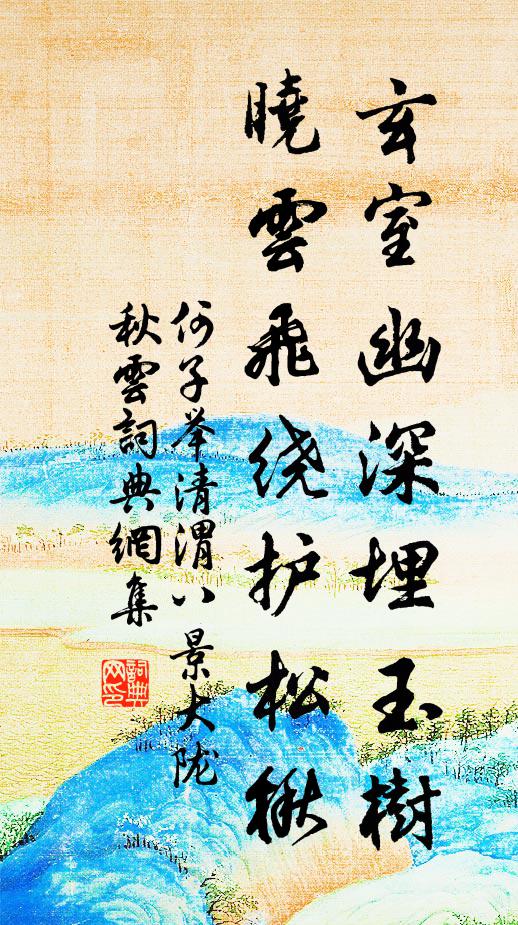 玄室幽深埋玉樹
曉雲飛绕护松楸
何子举清渭八景大陇
秋雲詞典網集
詞典网印